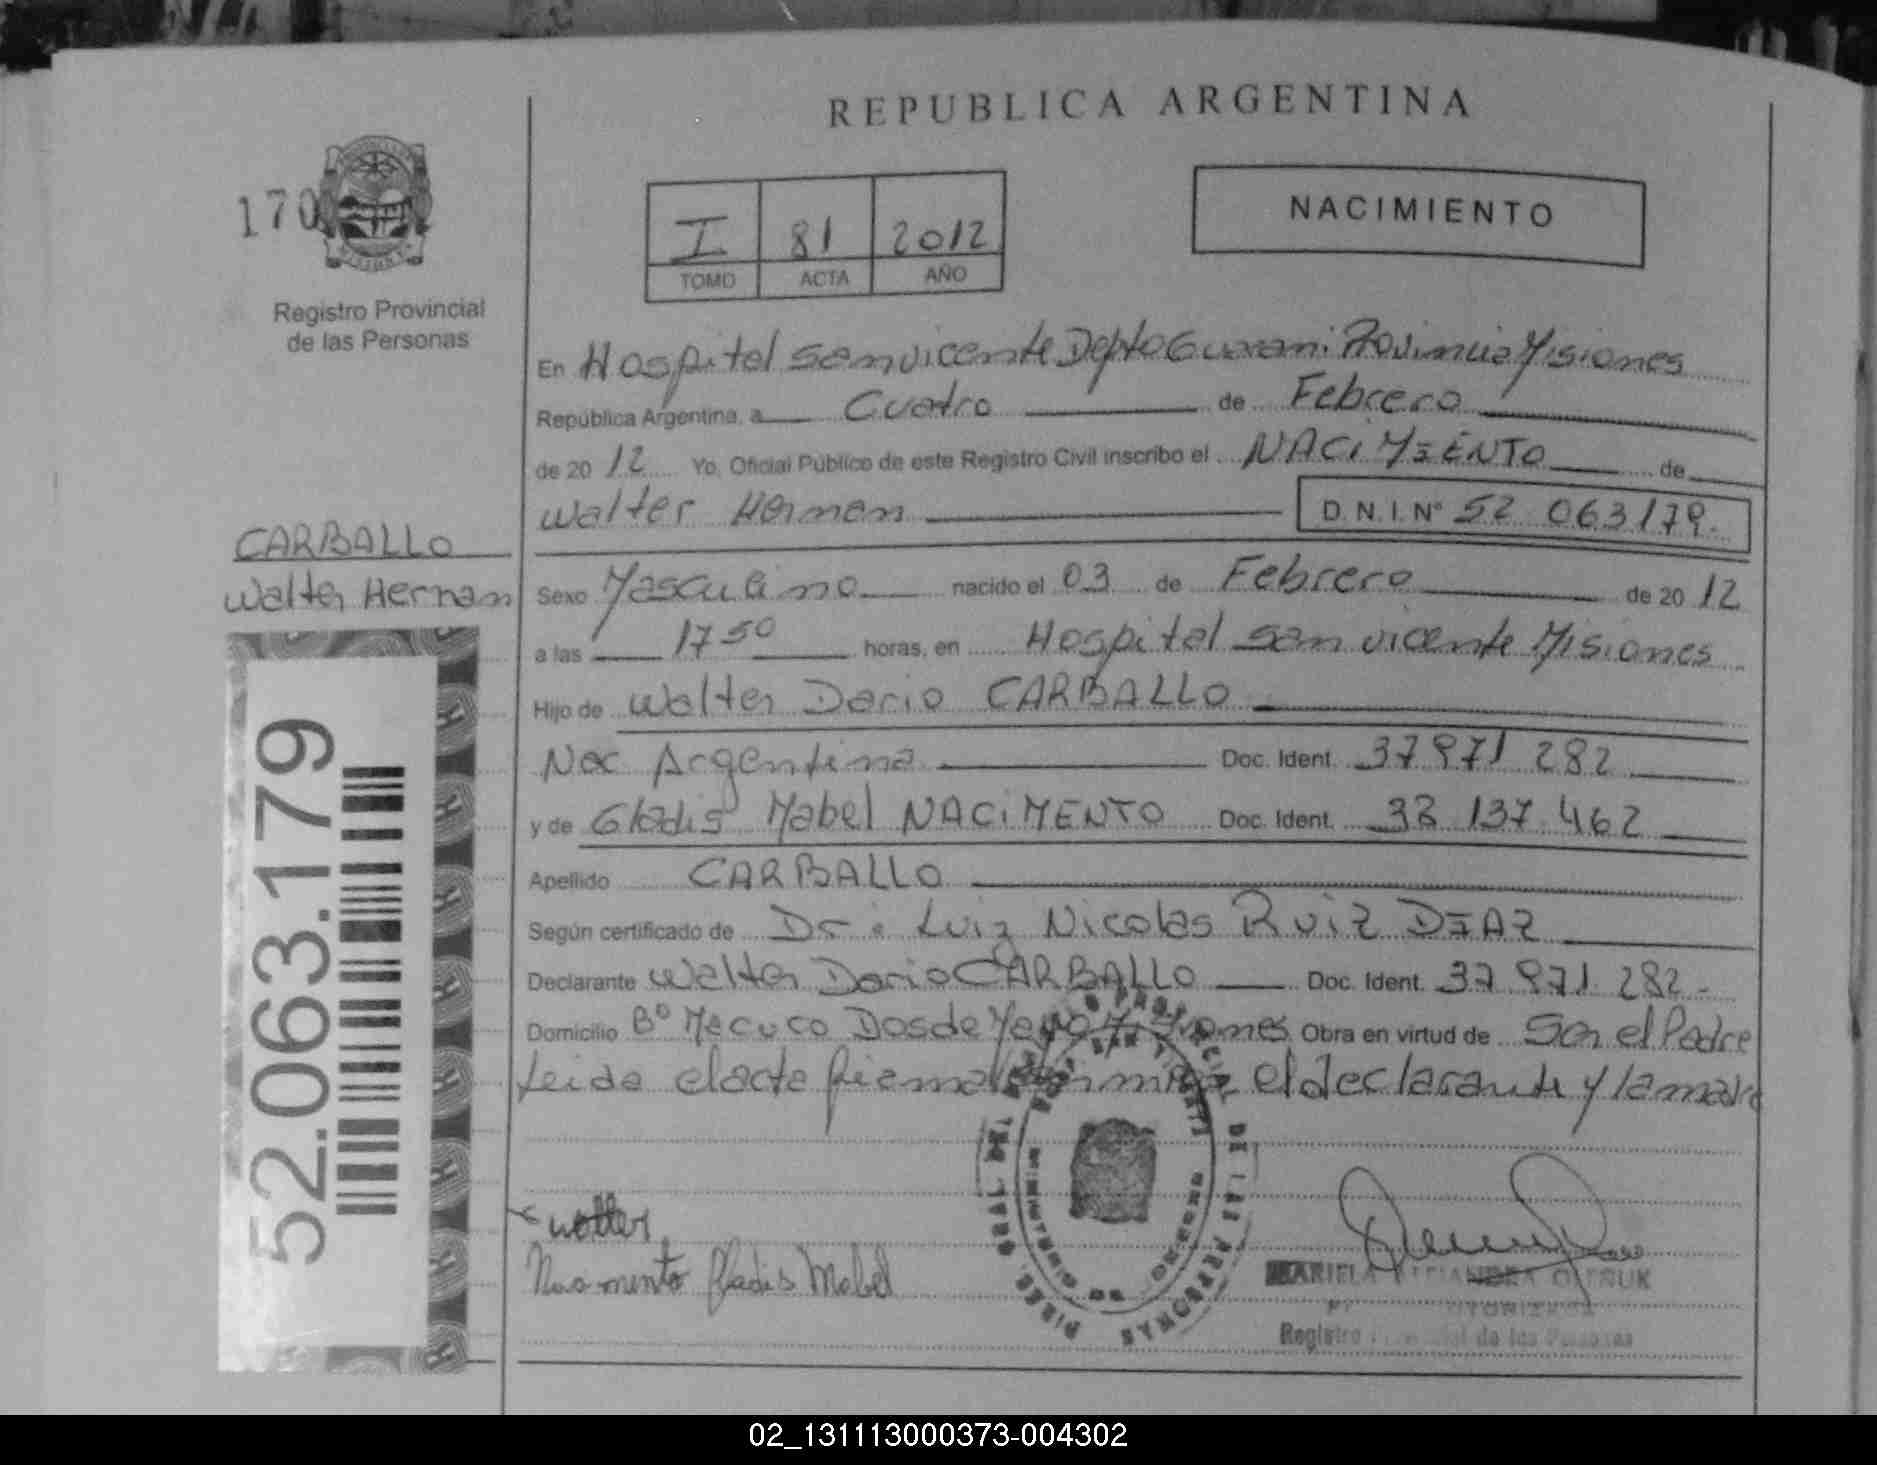 REPUBLICA ARGENTINA
170
Registro Provincial
de las Personas
I 81 2012
TOMO ACTA AÑO
NACIMIENTO
En Hospital San vicente Depto Guarani Provincia Misiones
República Argentina, a Cuatro de Febrero
de 20 12 Yo, Oficial Público de este Registro Civil inscribo el NACiMIENTO de
Walter Hernan D.N.I.Nº 52 063179.
CARBALLO
Walter Hernan
Sexo Masculino nacido el 03 de Febrero de 20 12
a las 17 50 horas, en Hospital San vicente Misiones
Hijo de Walter Dario CARBALLO
Nac Argentina Doc. Ident. 37 971 282
y de Gladis Mabel NACiMENTO Doc. Ident. 38 137 462
Apellido CARBALLO
Según certificado de Dr: Luiz Nicolas Ruiz DIAZ
Declarante Walter Dario CARBALLO Doc. Ident. 37 971 282
Domicilio Bº Mecuco Dosde Mayo Misiones Obra en virtud de Ser el Padre
Leida el acta firma el declarante y la madre
52.063.179
Walter
Nacimento Gladis Mabel
MARIELA ALEJANDRA OLENUK
Registro Provincial de las Personas
02_131113000373-004302